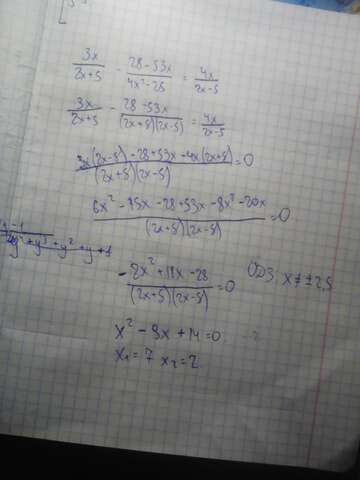 3x/(2x+5) - (28-53x)/(4x²-25) = 4x/(2x-5)
3x/(2x+5) - (28-53x)/((2x+5)(2x-5)) = 4x/(2x-5)
(3x(2x-5)-28+53x-4x(2x+5))/((2x+5)(2x-5)) = 0
(6x²-15x-28+53x-8x²-20x)/((2x+5)(2x-5)) = 0
+y³+y²+y+1
(-2x²+18x-28)/((2x+5)(2x-5)) = 0
ОДЗ: x≠±2,5
x²-9x+14=0
x₁=7 x₂=2